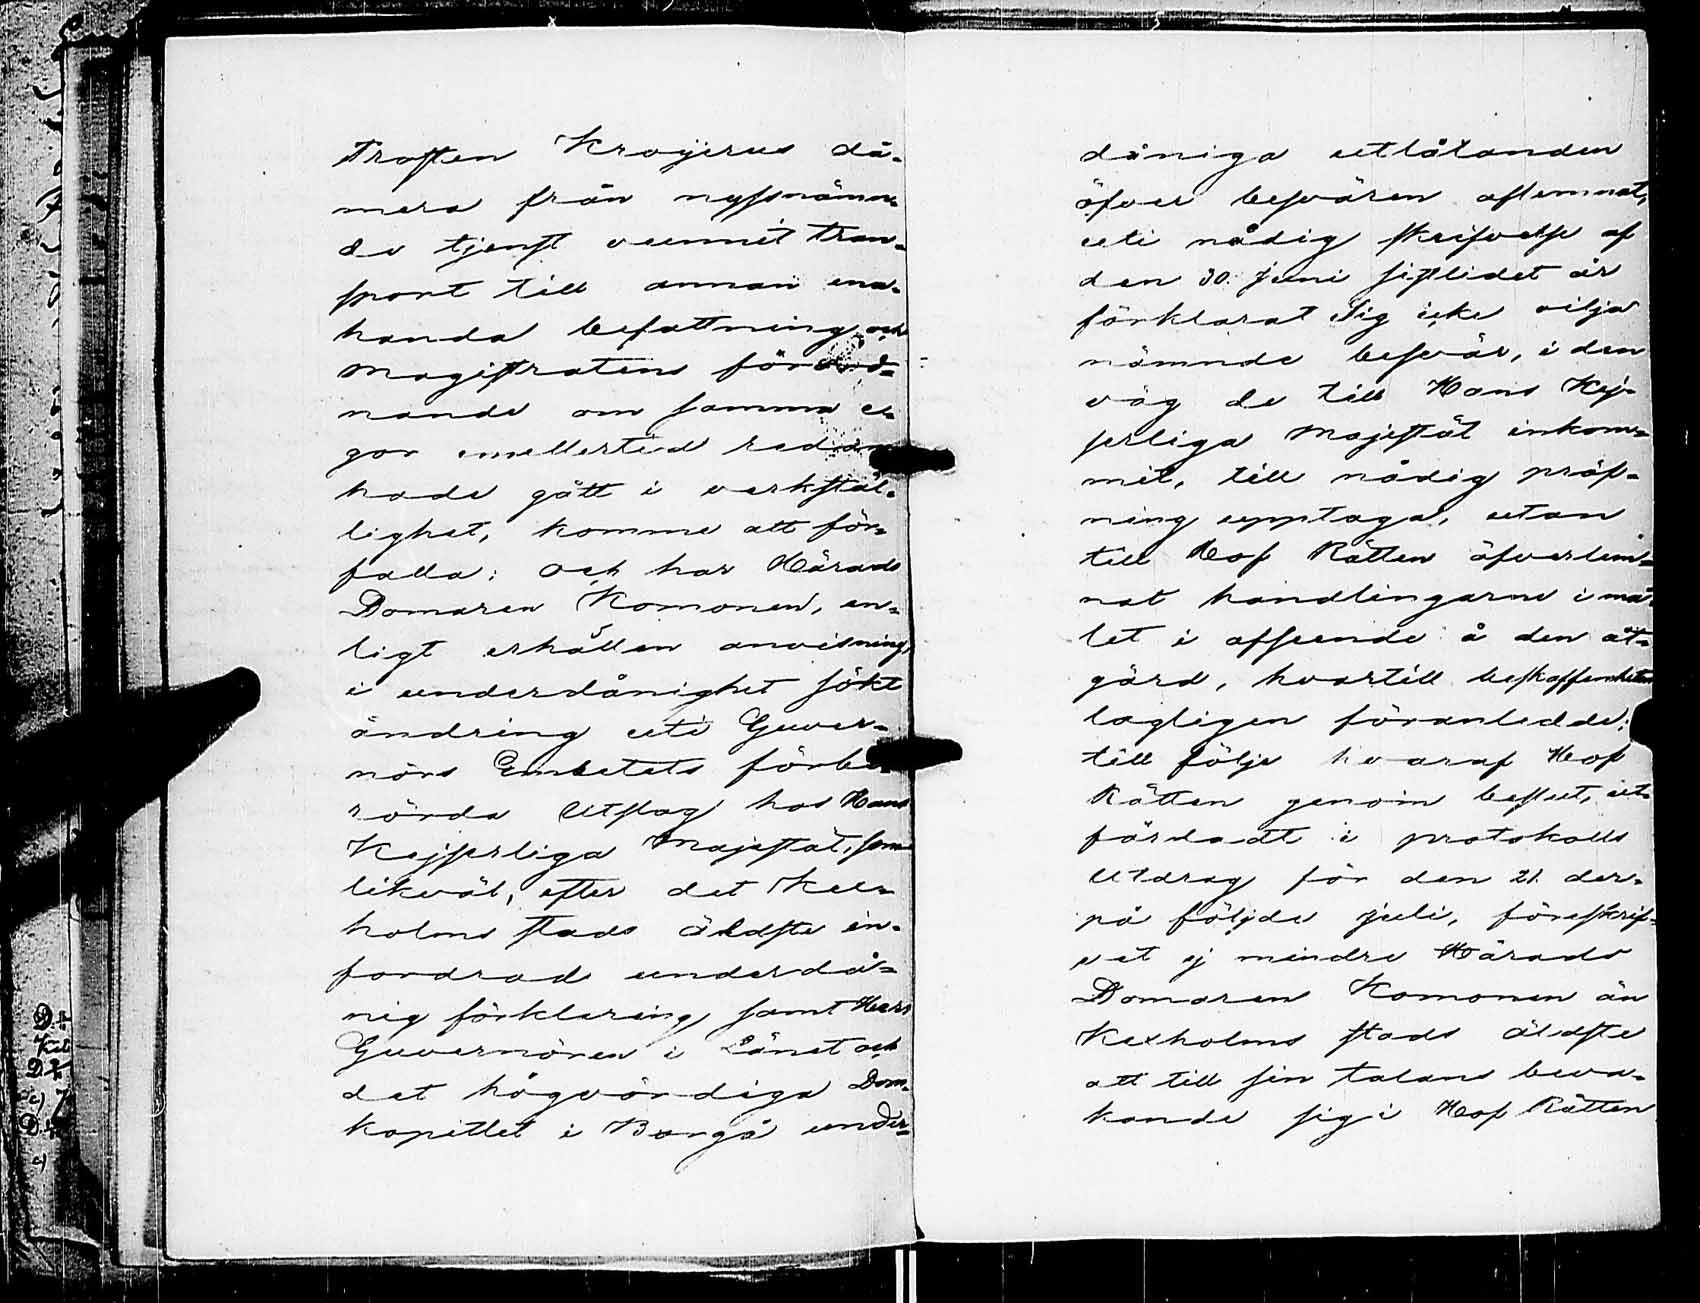 Prosten Krogerus då-
mera från nyssnämn-
de tjenst vunnit tran-
sport till annan ena-
handa befattning och
Magistratens förord-
nande om samma ve-
gar emellertid redan
hade gått i verkstäl-
lighet, komme att för-
falla; och har Härads
Domaren Komonen, en-
ligt erhållen anvisning
i underdånighet sökt
ändring uti Guver-
nörs Embetets förbe-
rörda Utslag hos Hans
Kejserliga Majestät, som
likväl, efter det Kex-
holms stads äldste in-
fordrad underdå-
nig förklaring samt Herr
Guvernören i Länet och
det högvördiga Dom-
kapitlet i Borgå under-
dåniga utlåtanden
öfver besvären aflemnat,
uti nådig skrifvelse af
den 30. Juni sistlidet år
förklarat Sig icke vilja
nämnde besvär, i den
väg de till Hans Kej-
serliga Majestät inkom-
mit, till nådig pröf-
ning upptaga, utan
till Hof Rätten öfverlem-
nat handlingarne i må-
let i afseende å den åt-
gärd, hvartill beskaffenheten
lagligen föranledde;
till följe hvaraf Hof
Rätten genom beslut, ut-
färdadt i protokolls
Utdrag för den 21. der-
på följde Juli, föreskrif-
vet ej mindre Härads
Domaren Komonen än
Kexholms stads äldste
att till sin talans beva-
kande sig i Hof Rätten